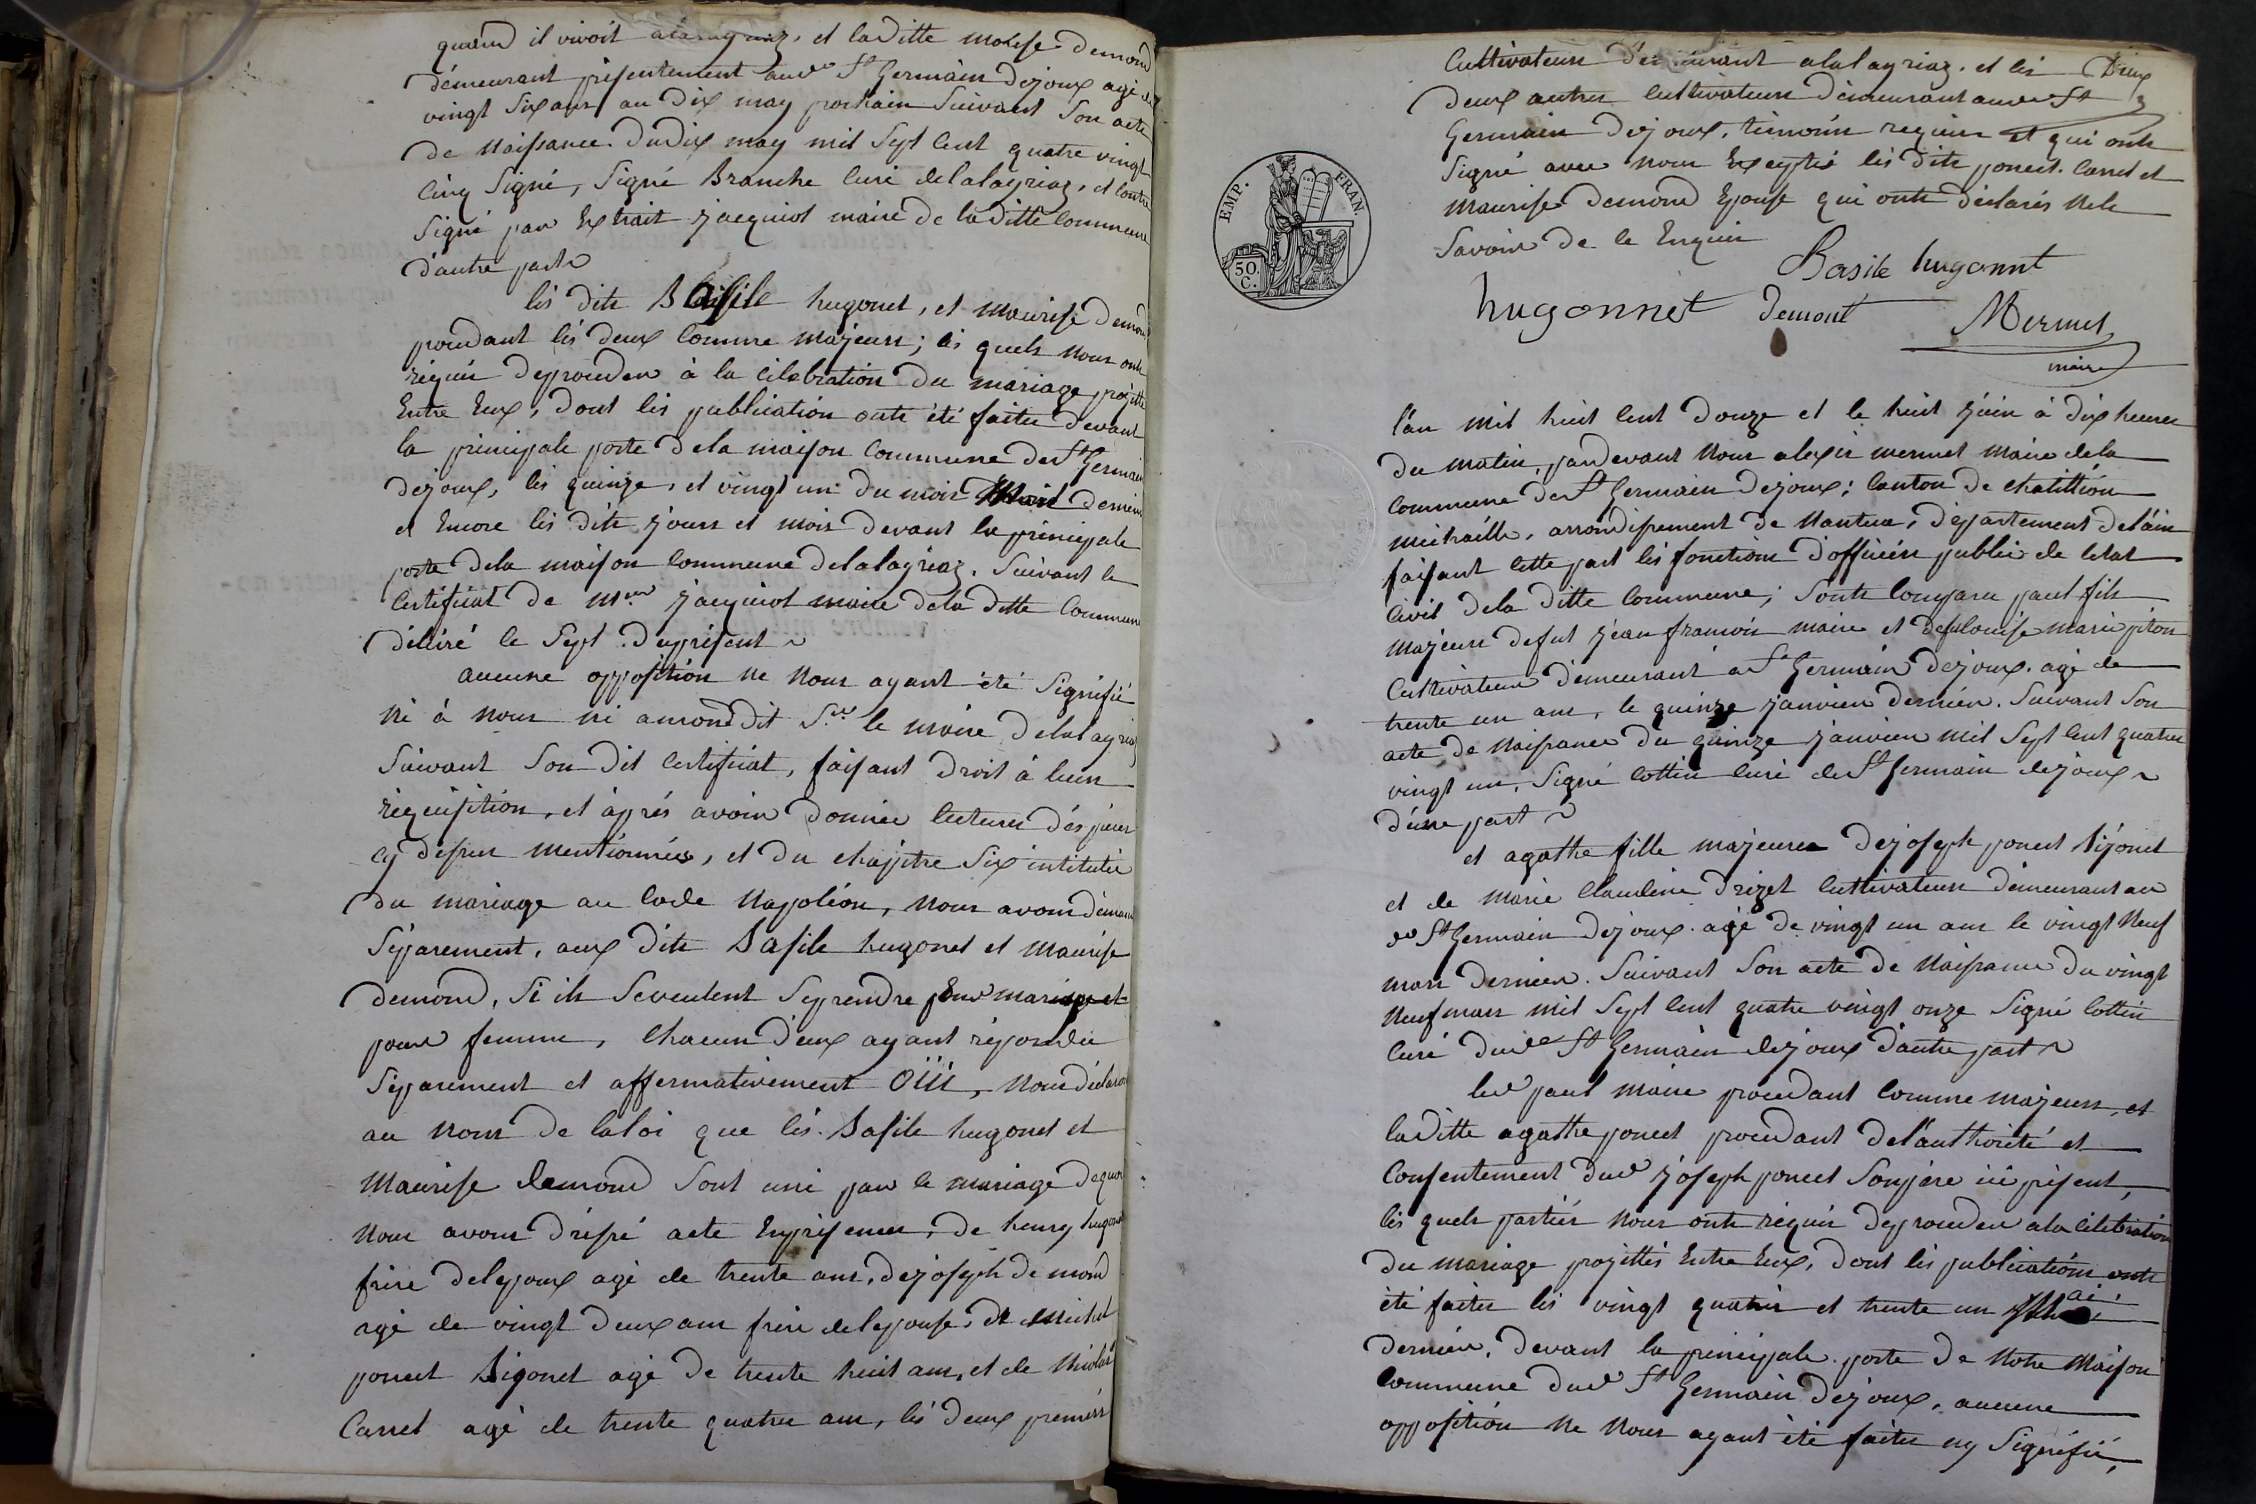 quand il vivoit et laditte morise demond
demeurant présentement aud St Germain dejoux agé de
vingt six ans au dix may prochain Suivant Son acte
de naissance. du dix may mil Sept Cent quatre vingt
Cinq Signé, Signé Branche Curé delalayriaz, et Contre
Signé par Extrait jacquiot maire de laditte Commune
d'autre part
lés dits Basile hugonet, et maurise demond
procedant lés deux Comme majeurs; lés quels nous onts
réquis deproceder à la célébration du mariage projetté
Entre Eux, dont lés publication onts été faites devant
la principale porte dela maison Commune de St Germain
dejoux, lés quinze, et vingt un du mois dernier
et Encore lés dits jours et mois devant la principale
porte dela maison Commune delalayriaz. Suivant le
Certificat de mr jacquiot maire dela ditte Commune
délivré le Sept. du présent
aucune opposition ne nous ayant été Signifié
ni à nous ni amondit Sr le maire delalayriaz
Suivant Son dit Certificat, faisant droit à leur
réquisition, et après avoir donnée lectures dés pièces
cy dessus mentionnées, et du chapitre Six intitulée
du mariage au Code Napoléon, nous avons démandé
Séparement, aux dits Basile hugonet et maurise
demond, Si ils Seveulent Seprendre pour mari et
pour femme, Chacun d'eux ayant répondu
Séparement et affermativement OUi, nous déclarons
au nom de laloi que lés Basile hugonet et
Maurise demond Sont uni par le mariage dequoi
nous avons dréssé acte Enprésence, de henry hugonet
frère delepoux agé de trente ans, dejoseph de mond
agé de vingt deux ans frère delepouse, de michel
poncet Bigonet agé de trente huit ans, et de Nicolas
Carrel agé de trente quatre ans, lés deux premiérs
Cultivateurs démeurant alalayriaz. et lés
deux autres Cultivateurs démeurant aud St
Germain dejoux, témoins requis et qui onts
Signé avec nous Exceptés lés dits poncet. Carrel et
maurise demond Epouse qui onts déclarés nele
Savoir de ce Enquis
Basile hugonnet
hugonnet demont Mermet
maire
EMP. FRAN.
50.
C.
l'an mil huit Cent douze et le huit juin à dix heures
du matin, pardevant nous alexis mermet maire dela
Commune de St Germain dejoux; Canton de chatillion
michaille, arrondissement de Nantua, département de l'ain
faisant Cette part lés fonctions d'officiér public de létat
Civil dela ditte Commune; Sonts Comparu paul fils
majeurs defut jean francois maire et defut louise marie piton
Cultivateur démeurant a St Germain dejoux. agé de
trente un ans, le quinze janvier derniér. Suivant Son
acte de naissance du quinze janvier mil Sept Cent quatre
vingt un, Signé Cottin Curé de St Germain dejoux
d'une part
et agathe fille majeure dejoseph poncet
et de marie Claudine drizet Cultivateurs démeurant au
dt St Germain dejoux. agé de vingt un ans le vingt neuf
mars dernier. Suivant Son acte de naissance du vingt
neuf mars mil Sept Cent quatre vingt onze Signé Cottin
Curé dud St Germain dejoux d'autre part
led paul maire procedant Comme majeurs, et
laditte agathe poncet procedant del'authorité et
Consentement dud joseph poncet Sonpère ici présent,
lés quels partiés nous onts réquis deproceder ala célébration
du mariage projettés Entre Eux, dont lés publications onts
été faites lés vingt quatre et trente un mai
derniér, devant la principale porte de notre Maison
Commune dud St Germain dejoux, aucune
opposition ne nous ayant été faites ny Signifié,